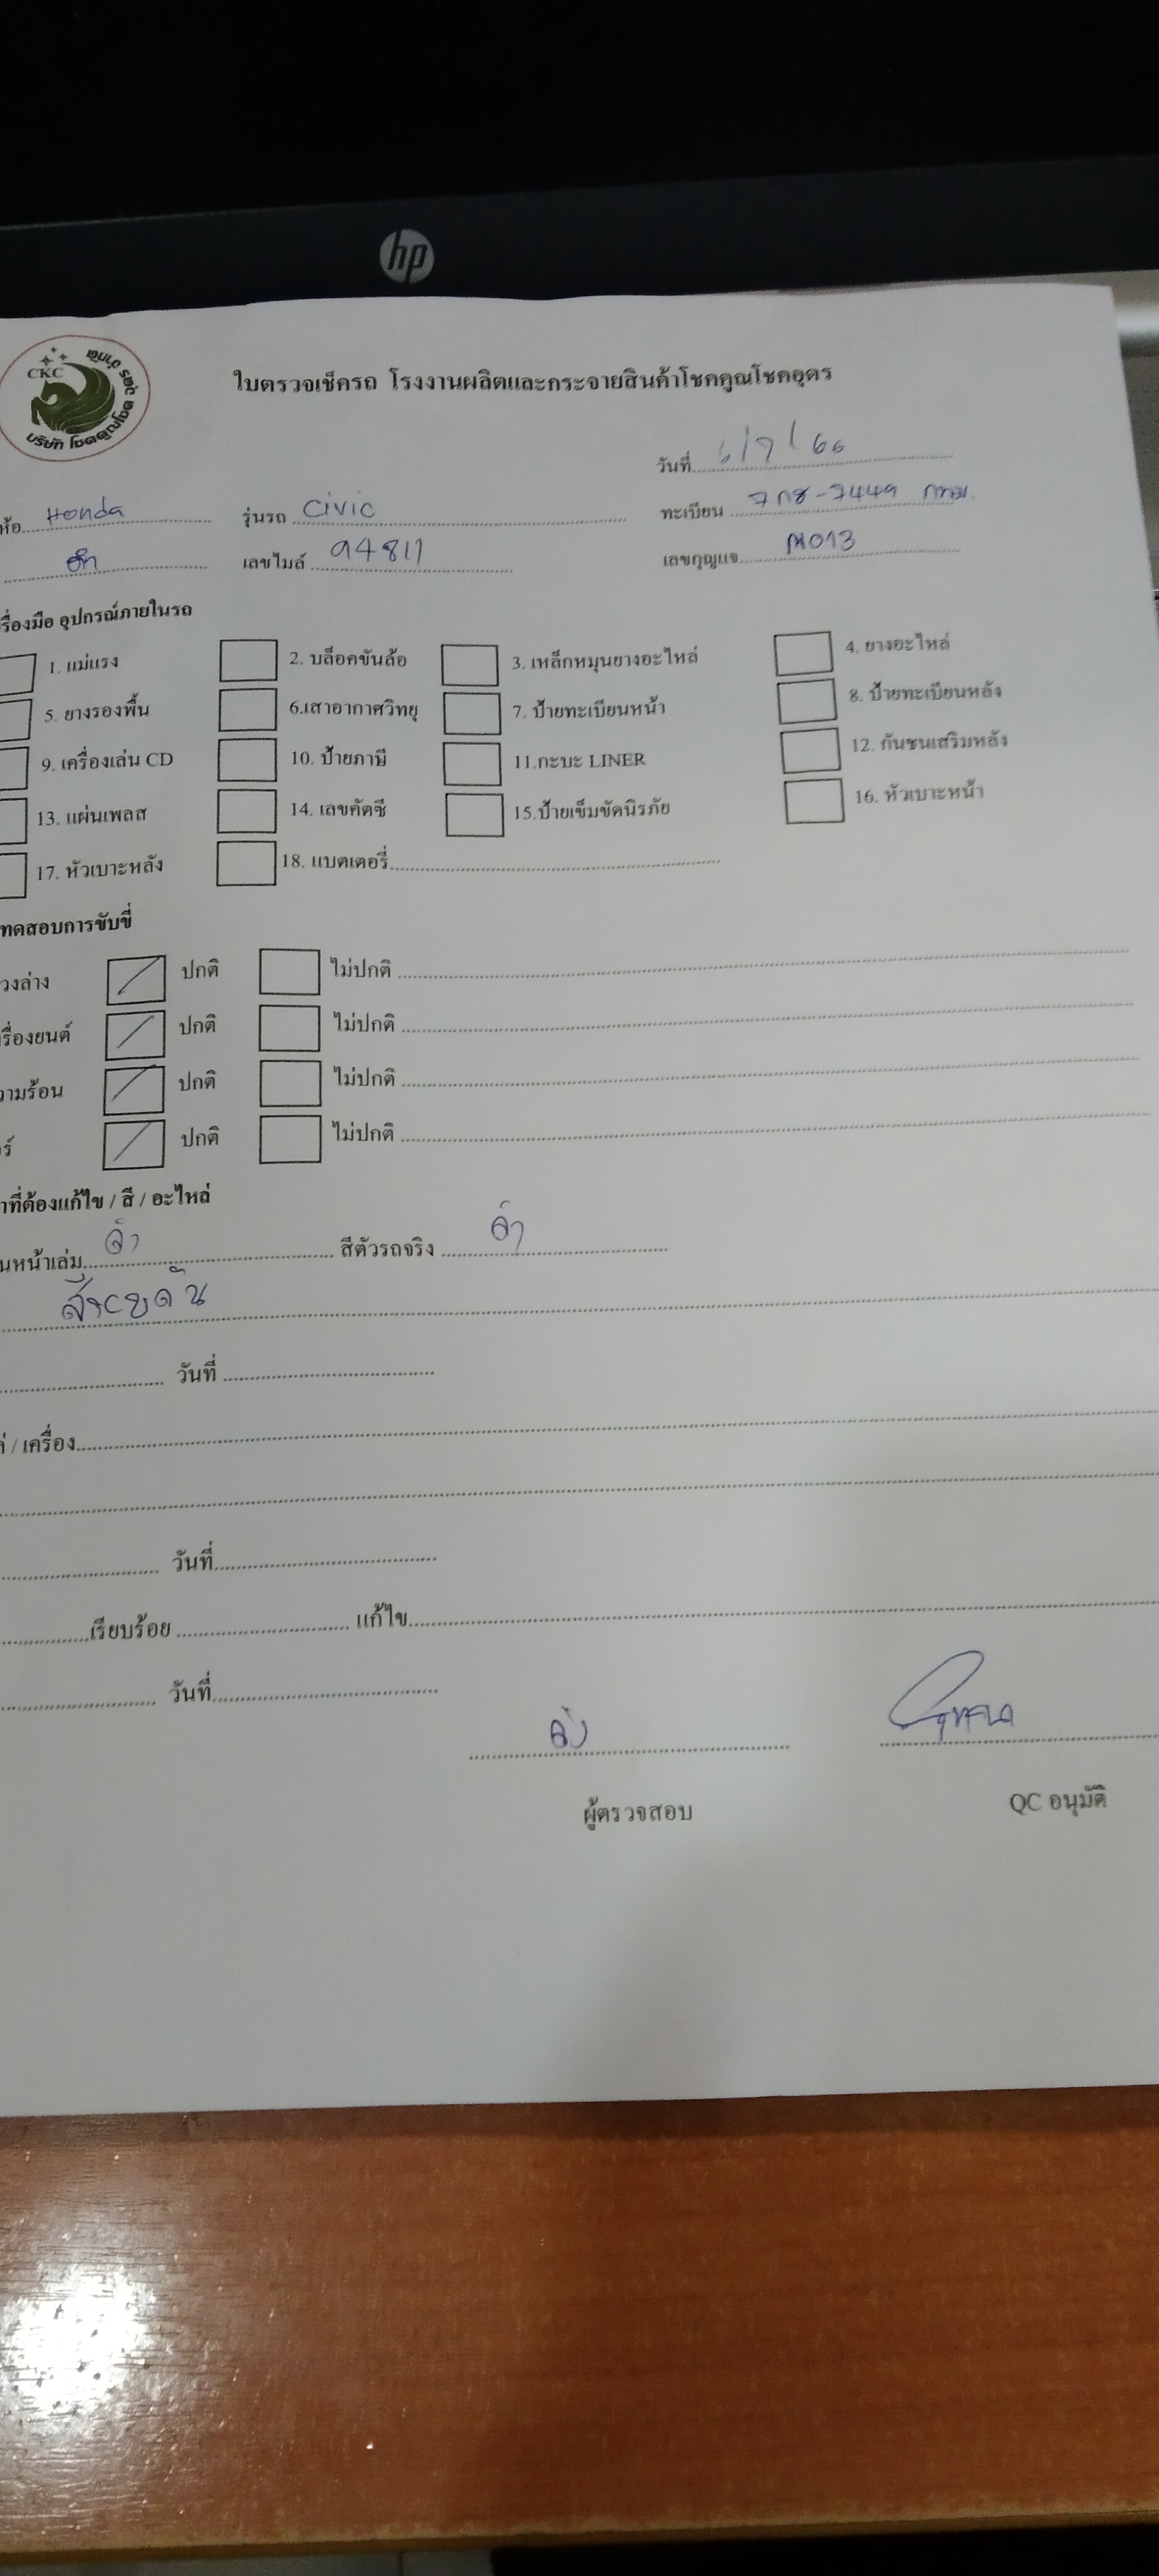 hp
CKC
บริษัท โชคคูณโชค อุดร จำกัด
ใบตรวจเช็ครถ โรงงานผลิตและกระจายสินค้าโชคคูณโชคอุดร
วันที่ 6/7/66
ห้อ Honda รุ่นรถ civic ทะเบียน 7449 กทม.
ดำ เลขไมล์ 94811 เลขกุญแจ M013
รื่องมือ อุปกรณ์ภายในรถ
1. แม่แรง 2. บล็อคขันล้อ 3. เหล็กหมุนยางอะไหล่ 4. ยางอะไหล่
5. ยางรองพื้น 6.เสาอากาศวิทยุ 7. ป้ายทะเบียนหน้า 8. ป้ายทะเบียนหลัง
9. เครื่องเล่น CD 10. ป้ายภาษี 11.กะบะ LINER 12. กันชนเสริมหลัง
13. แผ่นเพลส 14. เลขคัตซี 15.ป้ายเข็มขัดนิรภัย 16. หัวเบาะหน้า
17. หัวเบาะหลัง 18. แบตเตอรี่
ทดสอบการขับขี่
วงล่าง ปกติ ไม่ปกติ
รื่องยนต์ ปกติ ไม่ปกติ
วามร้อน ปกติ ไม่ปกติ
ร์ ปกติ ไม่ปกติ
าที่ต้องแก้ไข / สี / อะไหล่
นหน้าเล่ม ดำ สีตัวรถจริง ดำ
วันที่
/ เครื่อง
วันที่
เรียบร้อย แก้ไข
วันที่
ผู้ตรวจสอบ QC อนุมัติ